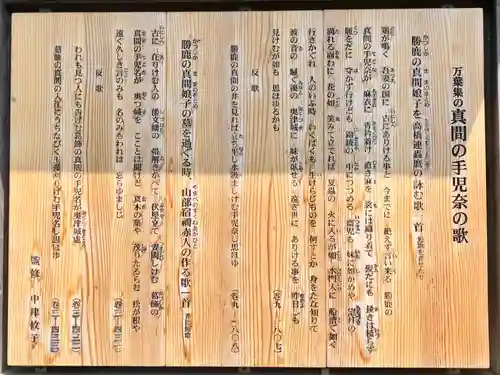 万葉集の真間の手児奈の歌
勝鹿の真間娘子を高橋連虫麿の詠む歌一首
鶏が鳴く 吾妻の国に 古にありける事と 今までに 絶えず言い来る 勝鹿の
真間の手児奈が 麻衣に 青衿着け 直さ麻を 裳には織り着て 髪だにも 掻きは梳らず
履をだに 穿かず行けども 錦綾の 中につつめる 斎児も 妹に如かめや 望月の
満れる面わに 花の如 笑みて立てれば 夏虫の 火に入るが如 水門入に 船漕ぐ如く
行きかぐれ 人のいふ時 いくばくも 生けらじものを 何すとか 身をたな知りて
波の音の 騒く湊の 奥津城に 妹が臥せる 遠き世に ありける事を 昨日しも
見けむが如も 思ほゆるかも
(巻九-一八〇七)
反歌
勝鹿の真間の井を見れば立ち平し水汲ましけむ手児奈し思ほゆ
(巻九-一八〇八)
勝鹿の真間娘子の墓を過ぐる時、山部宿禰赤人の作る歌一首
古に 在りけむ人の 倭文幡の 帯解きかへて 伏屋立て 妻問しけむ 葛飾の
真間の手児名が 奥つ城を こことは聞けど 真木の葉や 茂りたるらむ 松が根や
遠く久しき 言のみも 名のみもわれは 忘らゆましじ
(巻三-四三一)
反歌
われも見つ人にも告げむ葛飾の真間の手児名が奥津城処
(巻三-四三二)
葛飾の真間の入江にうちなびく玉藻刈りけむ手児名し思ほゆ
(巻三-四三三)
監修 中津攸子